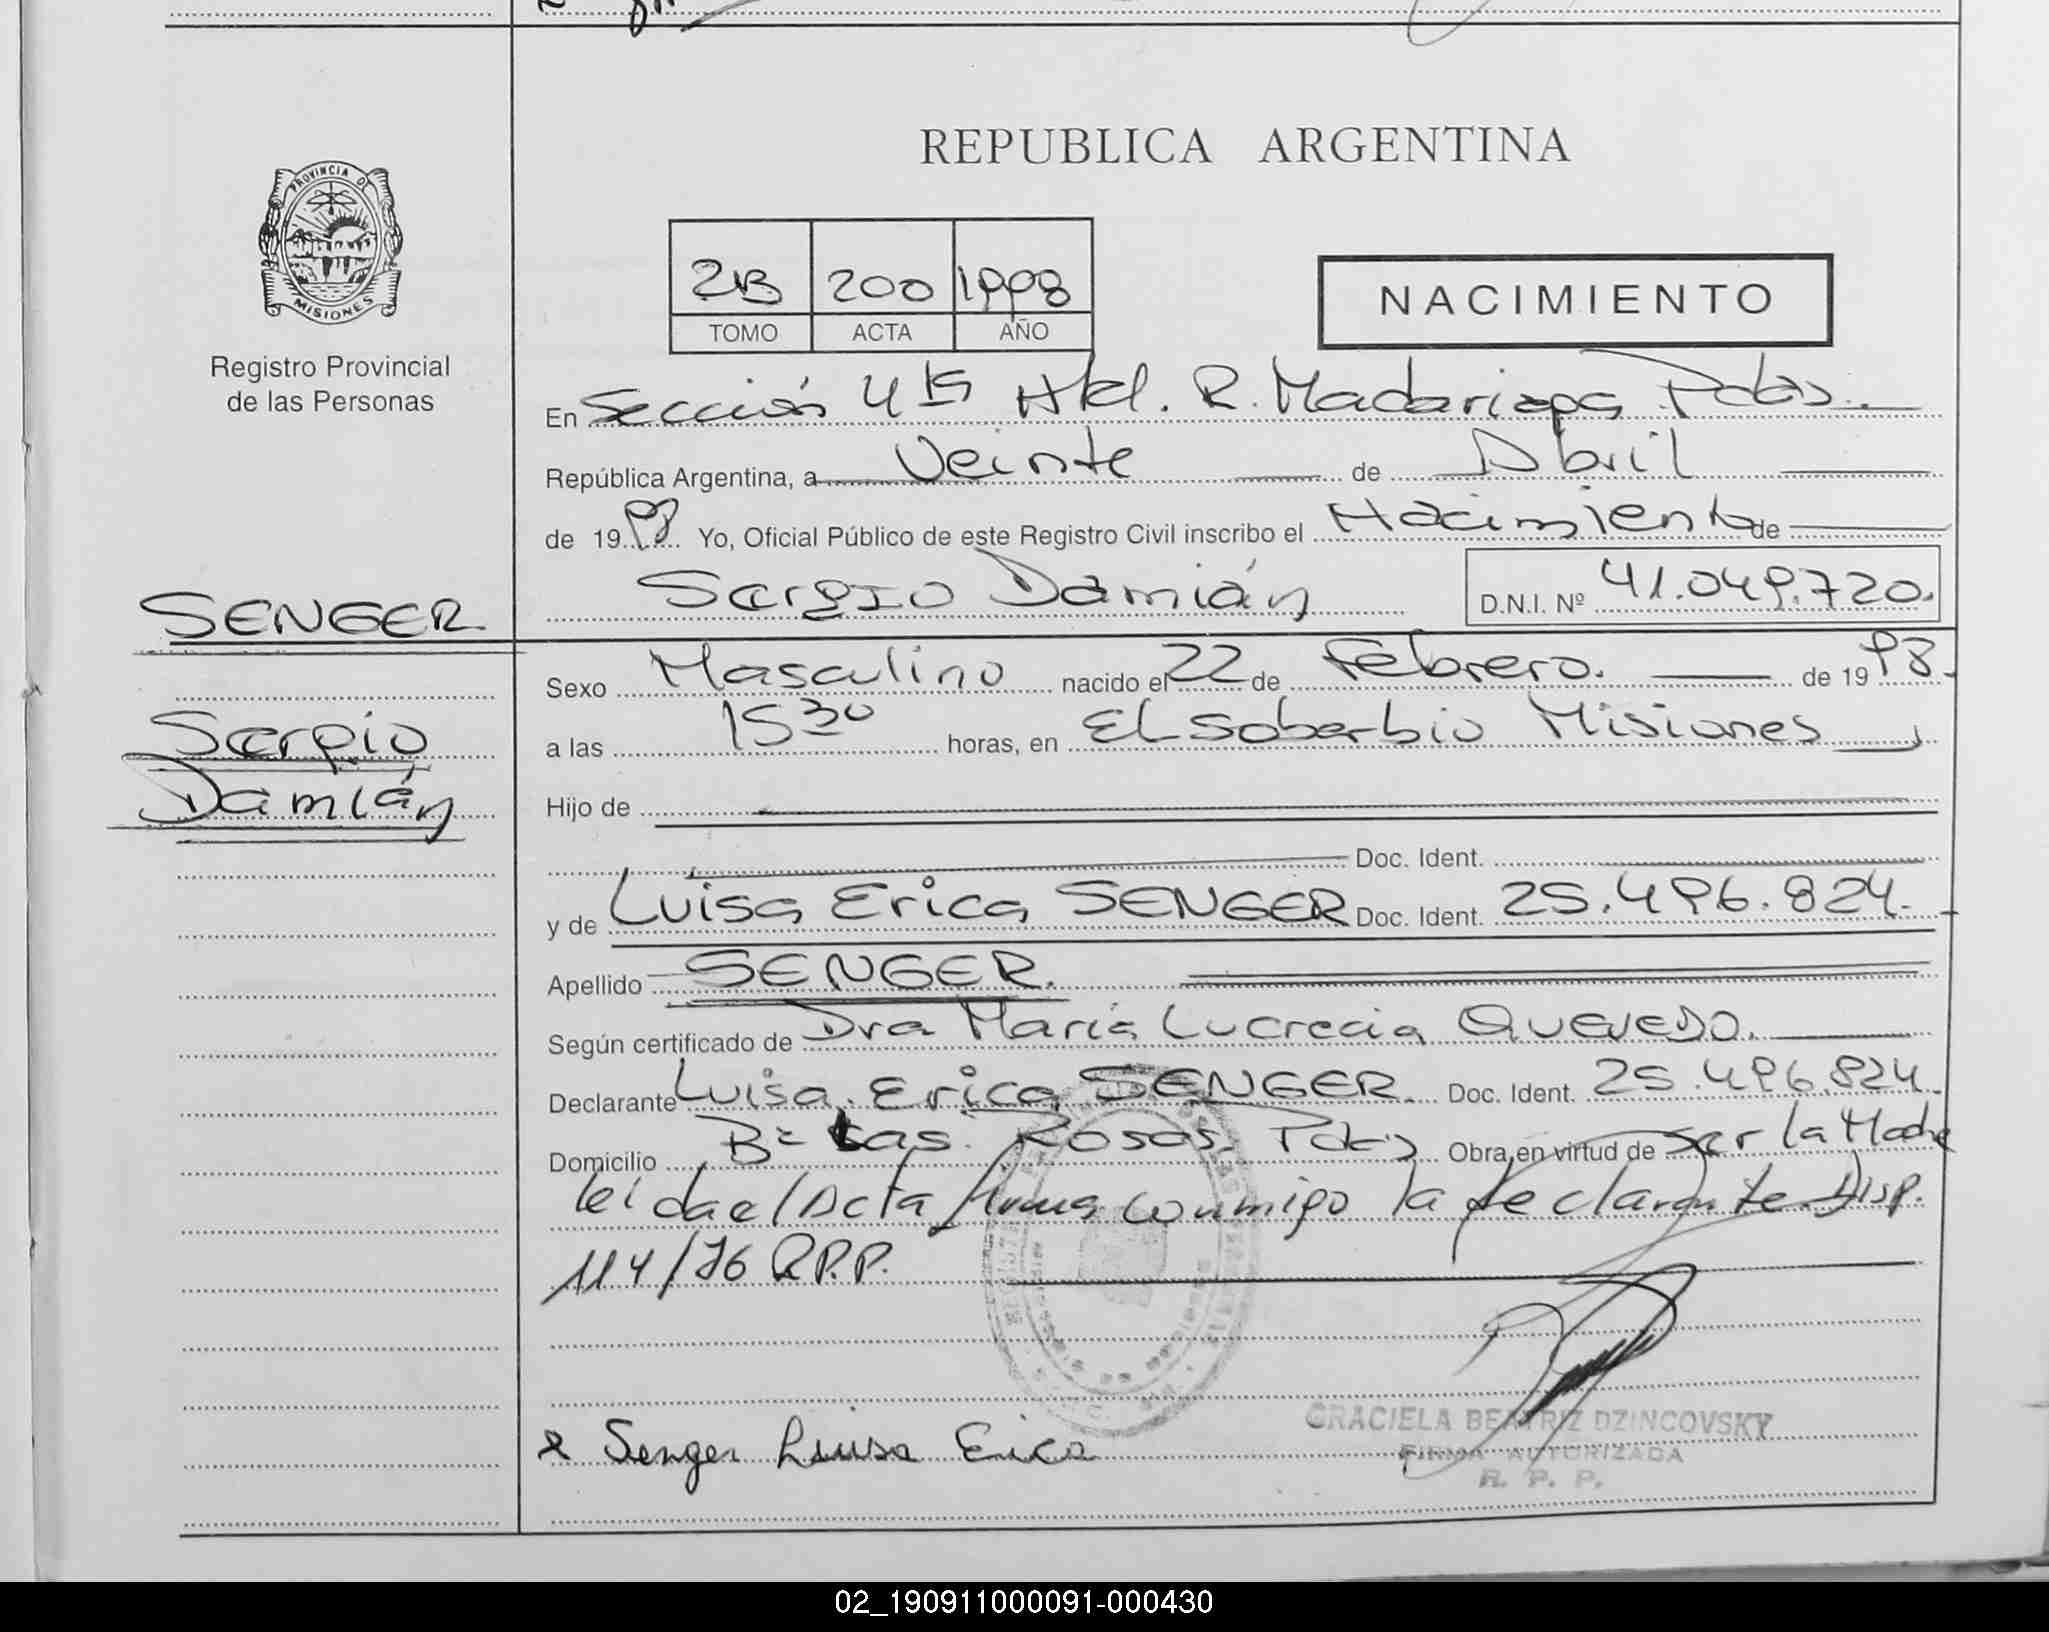 REPUBLICA ARGENTINA
PROVINCIA DE
MISIONES
Registro Provincial
de las Personas
2B 200 1998
TOMO ACTA AÑO
NACIMIENTO
En Sección 4ta Htal. R. Madariaga Pdas.
República Argentina, a Veinte de Abril
de 1998 Yo, Oficial Público de este Registro Civil inscribo el Nacimiento de
Sergio Damián D.N.I. Nº 41.049.720.
SENGER
Sergio
Damián
Sexo Masculino nacido el 22 de Febrero. de 1998.
a las 15 30 horas, en El Soberbio Misiones
Hijo de
Doc. Ident.
y de Luisa Erica SENGER Doc. Ident. 25.496.824.
Apellido SENGER.
Según certificado de Dra María Lucrecia QUEVEDO.
Declarante Luisa Erica SENGER. Doc. Ident. 25.496.824.
Domicilio Bº Las Rosas, Pdas Obra en virtud de ser la Madre
leida el Acta firma conmigo la declarante Disp.
114/76 R.P.P.
Senger Luisa Erica
GRACIELA BEATRIZ DZINCOVSKY
FIRMA AUTORIZADA
R. P. P.
02_190911000091-000430